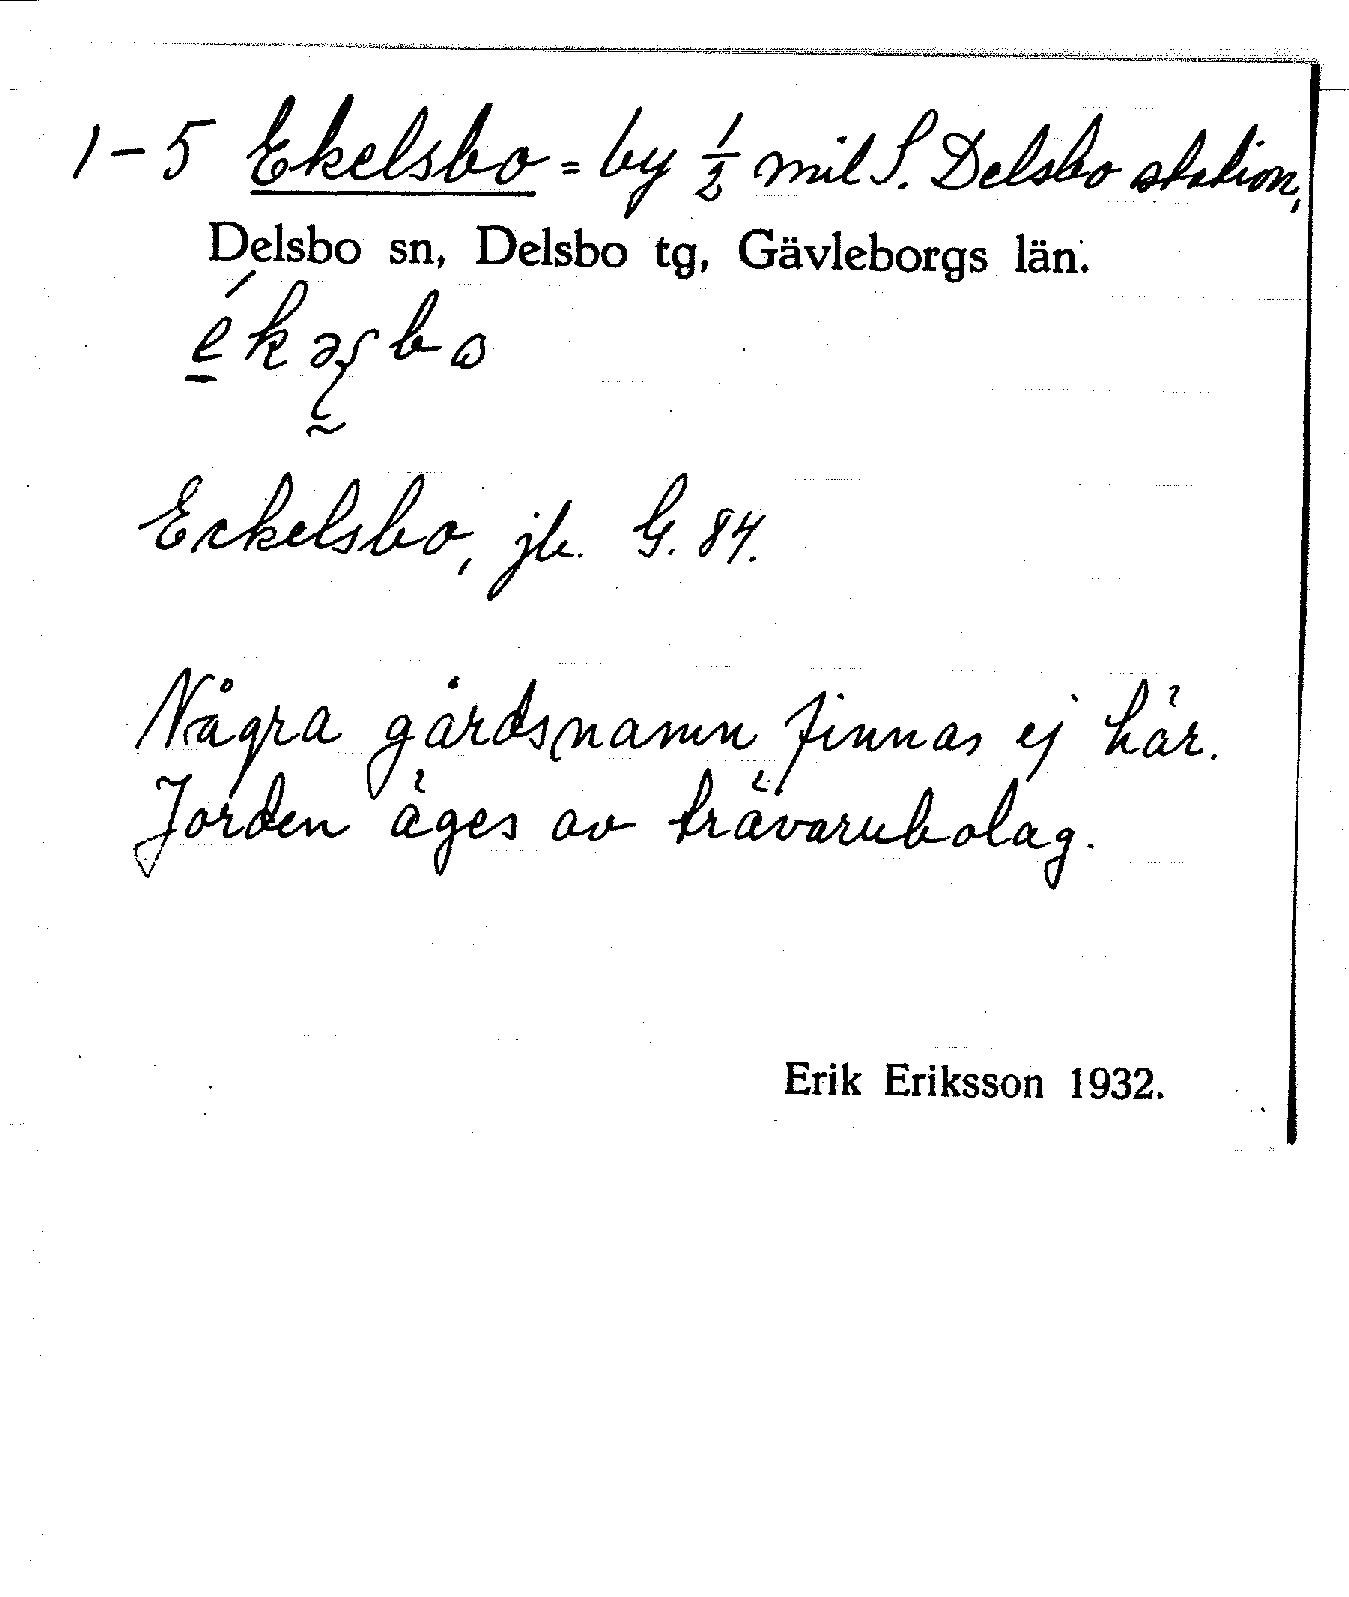 1-5 Ekelsbo = by ½ mil S. Delsbo station,
Delsbo sn, Delsbo tg, Gävleborgs län.
Eckelsbo, jb. G. 84.
Några gårdsnamn finnas ej här.
Jorden äges av trävarubolag.
Erik Eriksson 1932.